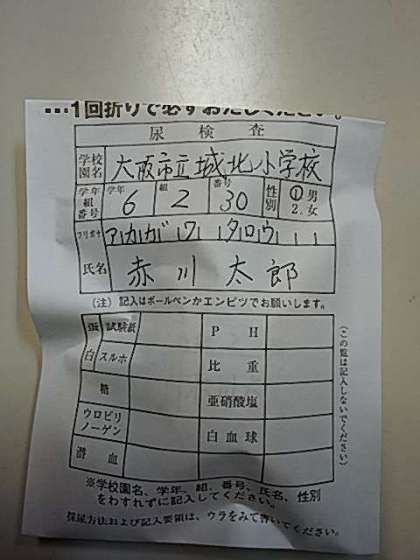 …1回折りで必ずおだしください。
尿検査
学校園名 大阪市立城北小学校
学年組番号 学年 6 組 2 番号 30 性別 ①男 2.女
フリガナ アカガワ タロウ
氏名 赤川 太郎
(注) 記入はボールペンかエンピツでお願いします。
蛋白 試験紙 PH
スルホ 比重
糖 亜硝酸塩
ウロビリノーゲン 白血球
潜血
(この覧は記入しないでください)
※学校園名、学年、組、番号、氏名、性別
をわすれずに記入してください。
採尿方法および記入要領は、ウラをみて書いてください。